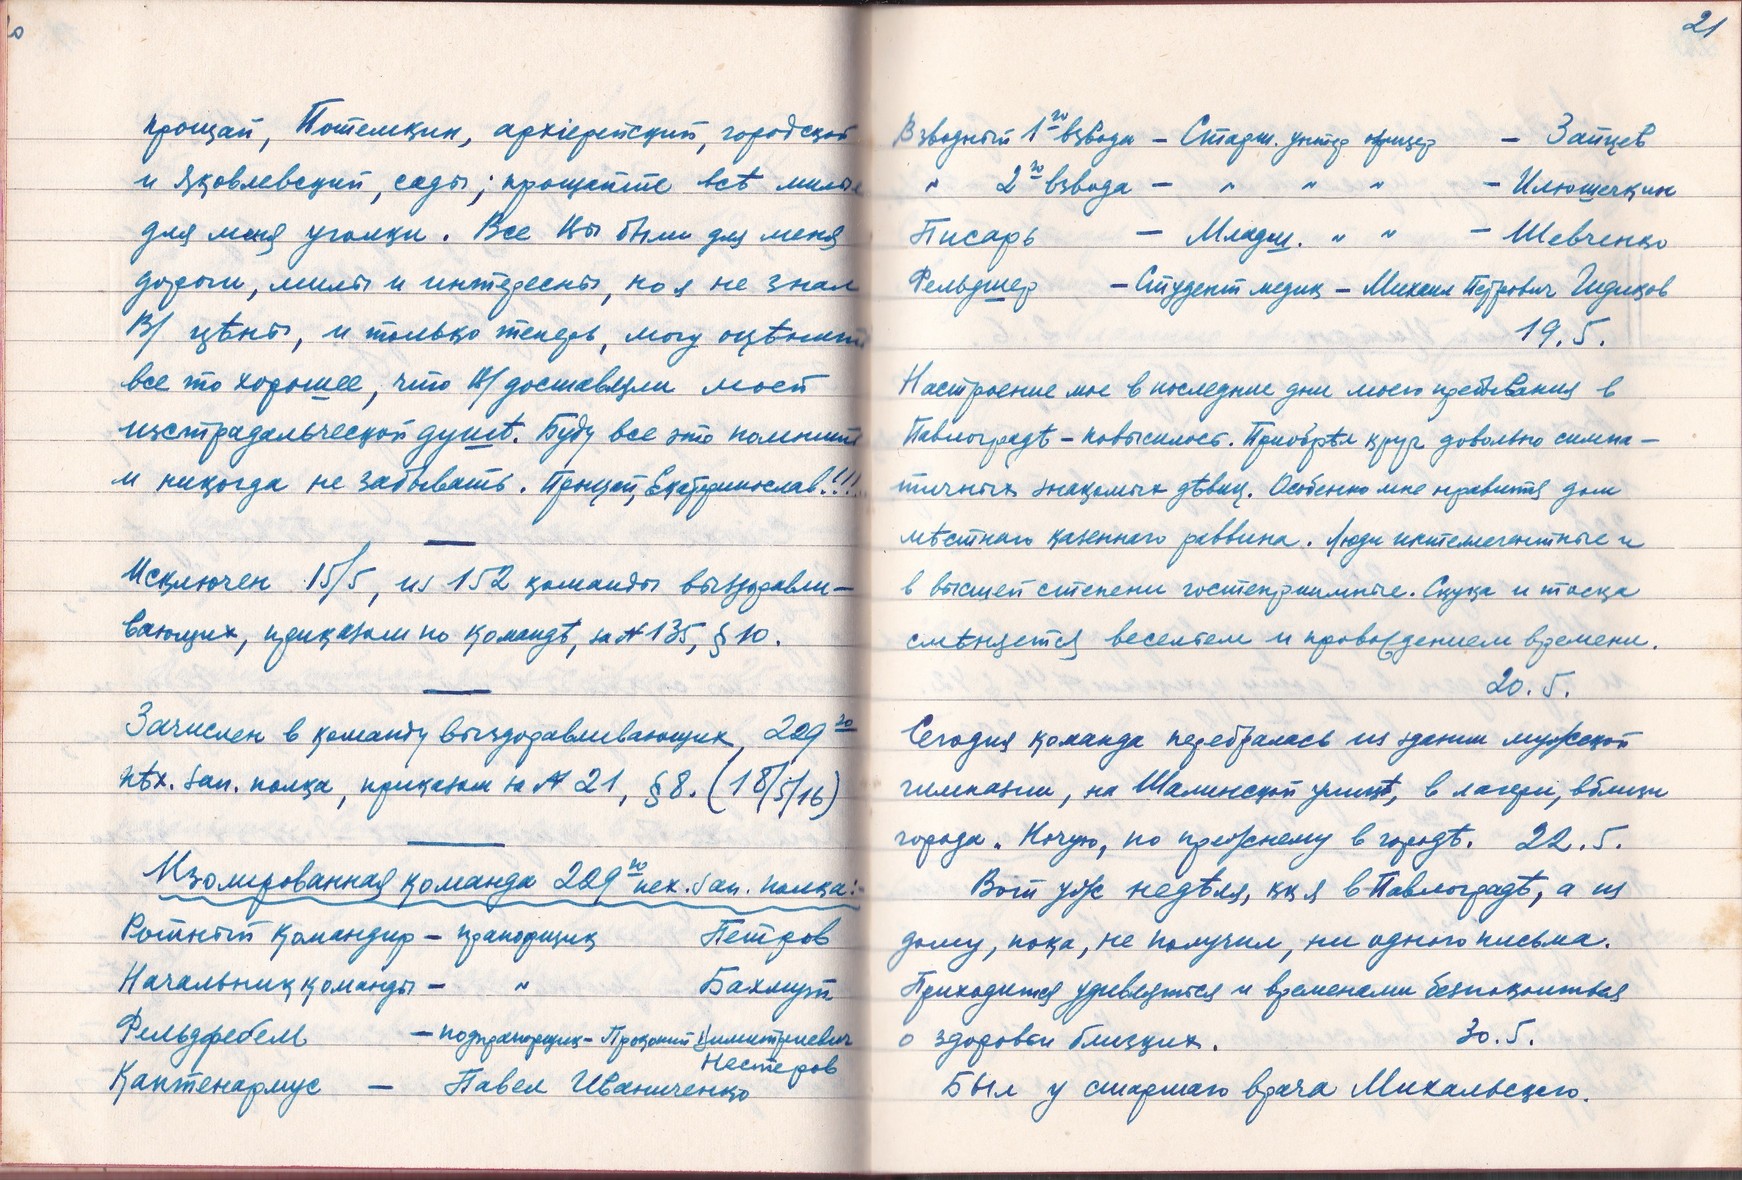 прощай, Потемкин, архіерейский, городской
и Яковлевский, сады; прощайте всѣ милые
для меня уголки. Все Вы были для меня
дороги, милы и интересны, но я не знал
Вʼ цѣны, и только теперь, могу оцѣнить
все то хорошее, что Вʼ доставляли моей
исстрадальческой душѣ. Буду все это помнить
и никогда не забывать. Прощай, Екатеринослав!!!!
Исключен 15/5, из 152 команды выздоравли-
вающих, приказом по командѣ, за № 135, § 10.
Зачислен в команду выздоравливающих, 209го
пѣх. зап. полка, приказом за № 21, § 8. (18/5/16)
Изолированная команда 209го пех. зап. полка:-
Ротный командир – прапорщик Петров
Начальник команды – " Бахмут
Фельдфебель – подпрапорщик – Прокопий Димитриевич
Нестеров
Каптенармус – Павел Иваниченко
21
Взводный 1го взвода – Старш. унтер офицер – Зайцев
" 2го взвода – " " " – Илюшечкин
Писарь – Младш. " " – Шевченко
Фельдшер – Студент медик – Михаил Петрович Гидиков
19.5.
Настроение мое в последние дни моего пребывания в
Павлоградѣ – повысилось. Приобрѣл круг довольно симпа-
тичных знакомых дѣвиц. Особенно мне нравится дом
мѣстнаго казеннаго раввина. Люди интеллегентные и
в высшей степени гостеприимные. Скука и тоска
смѣняется весельем и провождением времени.
20.5.
Сегодня команда перебралась из здания мужской
гимназии, на Шалинской улицѣ, в лагери, вблизи
города. Ночую, по прежнему в городѣ. 22.5.
Вот уж недѣля, как я в Павлоградѣ, а из
дому, пока, не получил, ни одного письма.
Приходится удивляться и временами безпокоиться
о здоровьи близких. 30.5.
Был у старшаго врача Михальскаго.